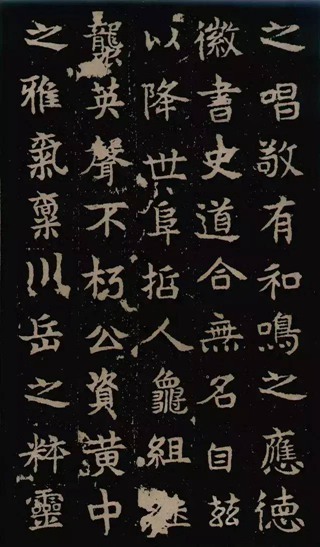 之唱敬有和鳴之應德
徽書史道合無名自茲
以降世阜哲人龜組
襲英聲不朽公資黃中
之雅氣稟川岳之粹靈